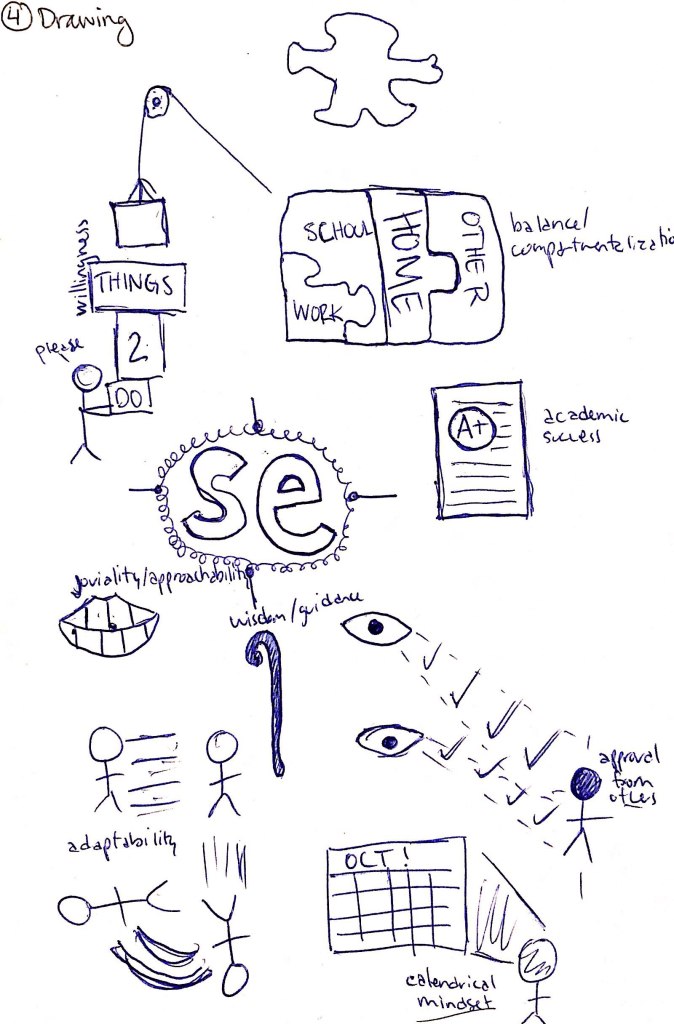 ④ Drawing
willingness
THINGS
2
DO
please
SCHOOL
WORK
HOME
OTHER
balance/
compartmentalizatio
A+
academic
success
se
joviality/approachability
wisdom/guidance
approval
from
others
adaptability
OCT!
calendrical
mindset